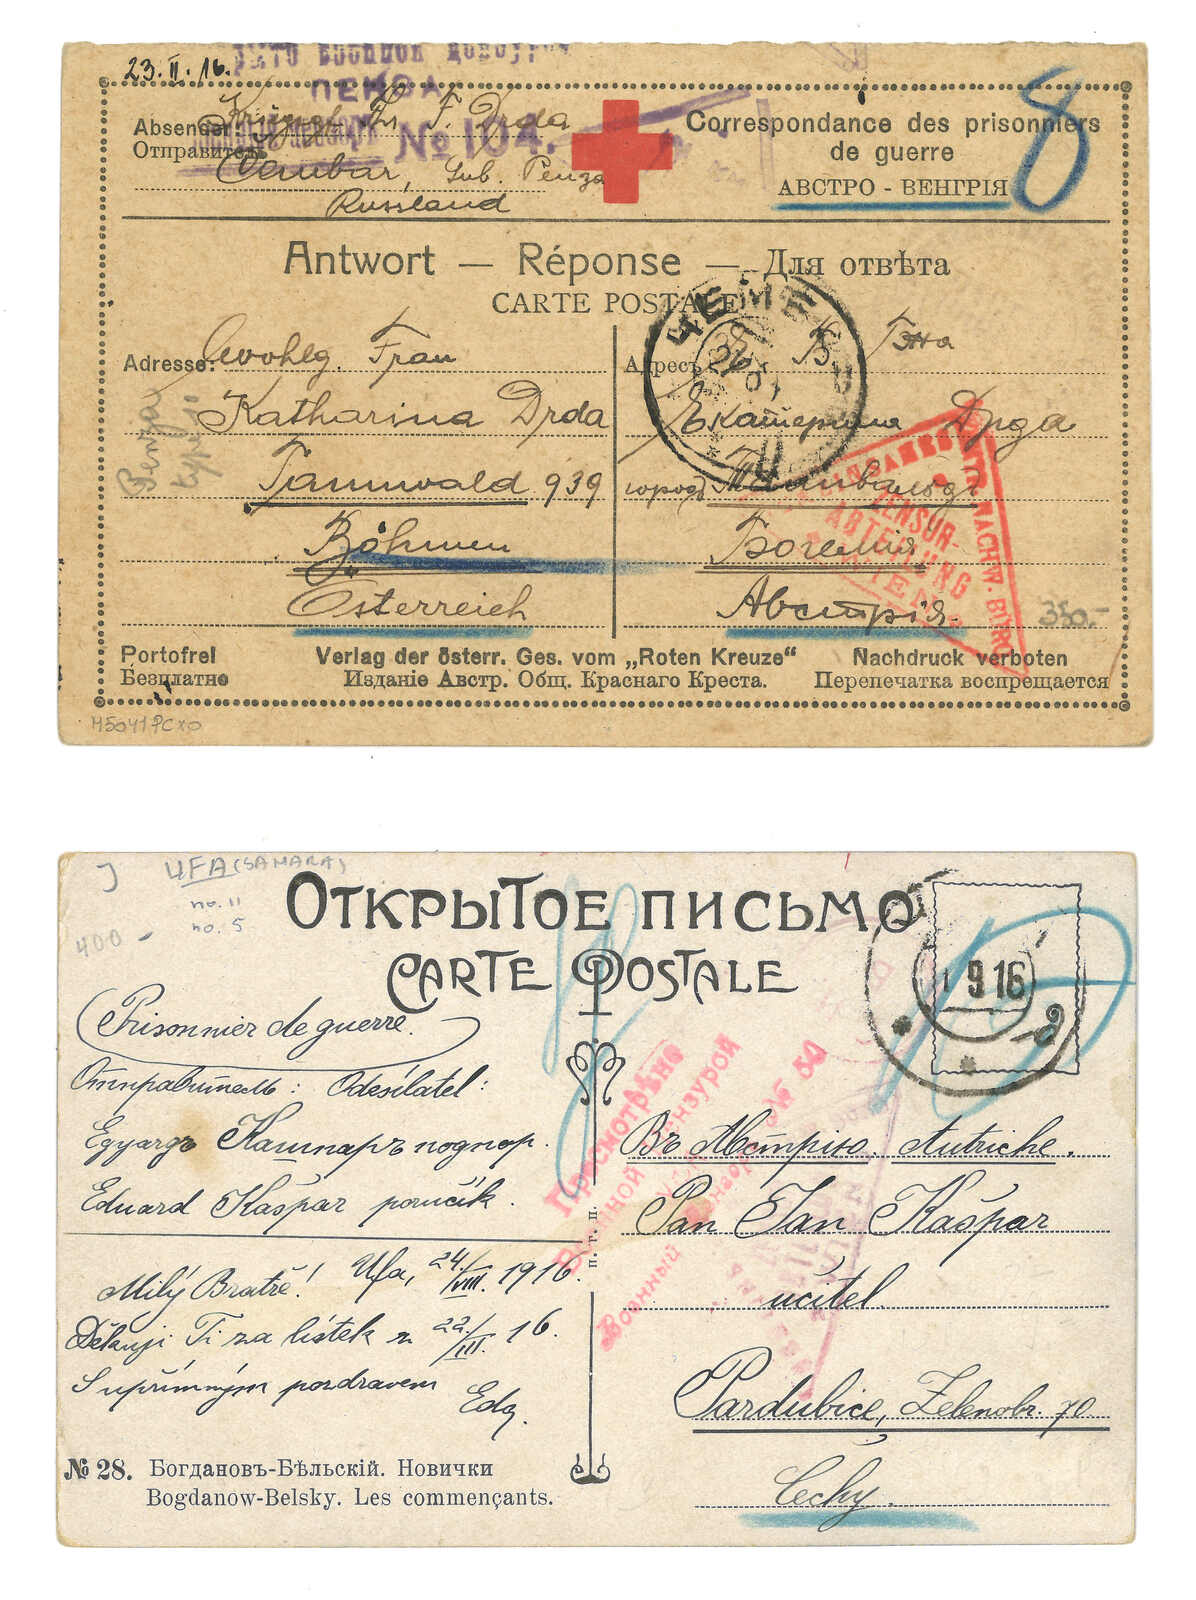 23. II. 16.
ПЕНЗА
№ 104.
Absender:
Отправитель
F. Drda
Čembar, Gub. Penza
Russland
Correspondance des prisonniers
de guerre
АВСТРО - ВЕНГРІЯ
8
Antwort — Réponse — Для отвѣта
CARTE POSTALE
Adresse:
Frau
Katharina Drda
Tannwald 939
Böhmen
Österreich
Penza
Адресъ
Екатерина Дрда
городъ Танвальдъ
Богемія
Австрія.
ZENSUR-
ABTEILUNG
350.-
Portofrei
Безплатно
Verlag der österr. Ges. vom „Roten Kreuze“
Изданіе Австр. Общ. Краснаго Креста.
Nachdruck verboten
Перепечатка воспрещается
UFA (SAMARA)
no. 11
no. 5
400 -
ОТКРЫТОЕ ПИСЬМО
CARTE POSTALE
1 9 16
Prisonnier de guerre.
Отправитель: Odesílatel:
Едуардъ Кашпаръ подпор.
Eduard Kašpar poručík.
Ufa, 24./VIII. 1916.
Milý Bratře!
Děkuji Ti za lístek z 22./III. 16.
S upřímným pozdravem
Eda.
Просмотрѣно
Военной Цензурой
Военный Цензоръ № 54
п. т. п.
Въ Австрію. Autriche.
Pan Jan Kašpar
učitel.
Pardubice, Zelenobr. 70
Čechy.
№ 28. Богдановъ-Бѣльскій. Новички
Bogdanow-Belsky. Les commençants.